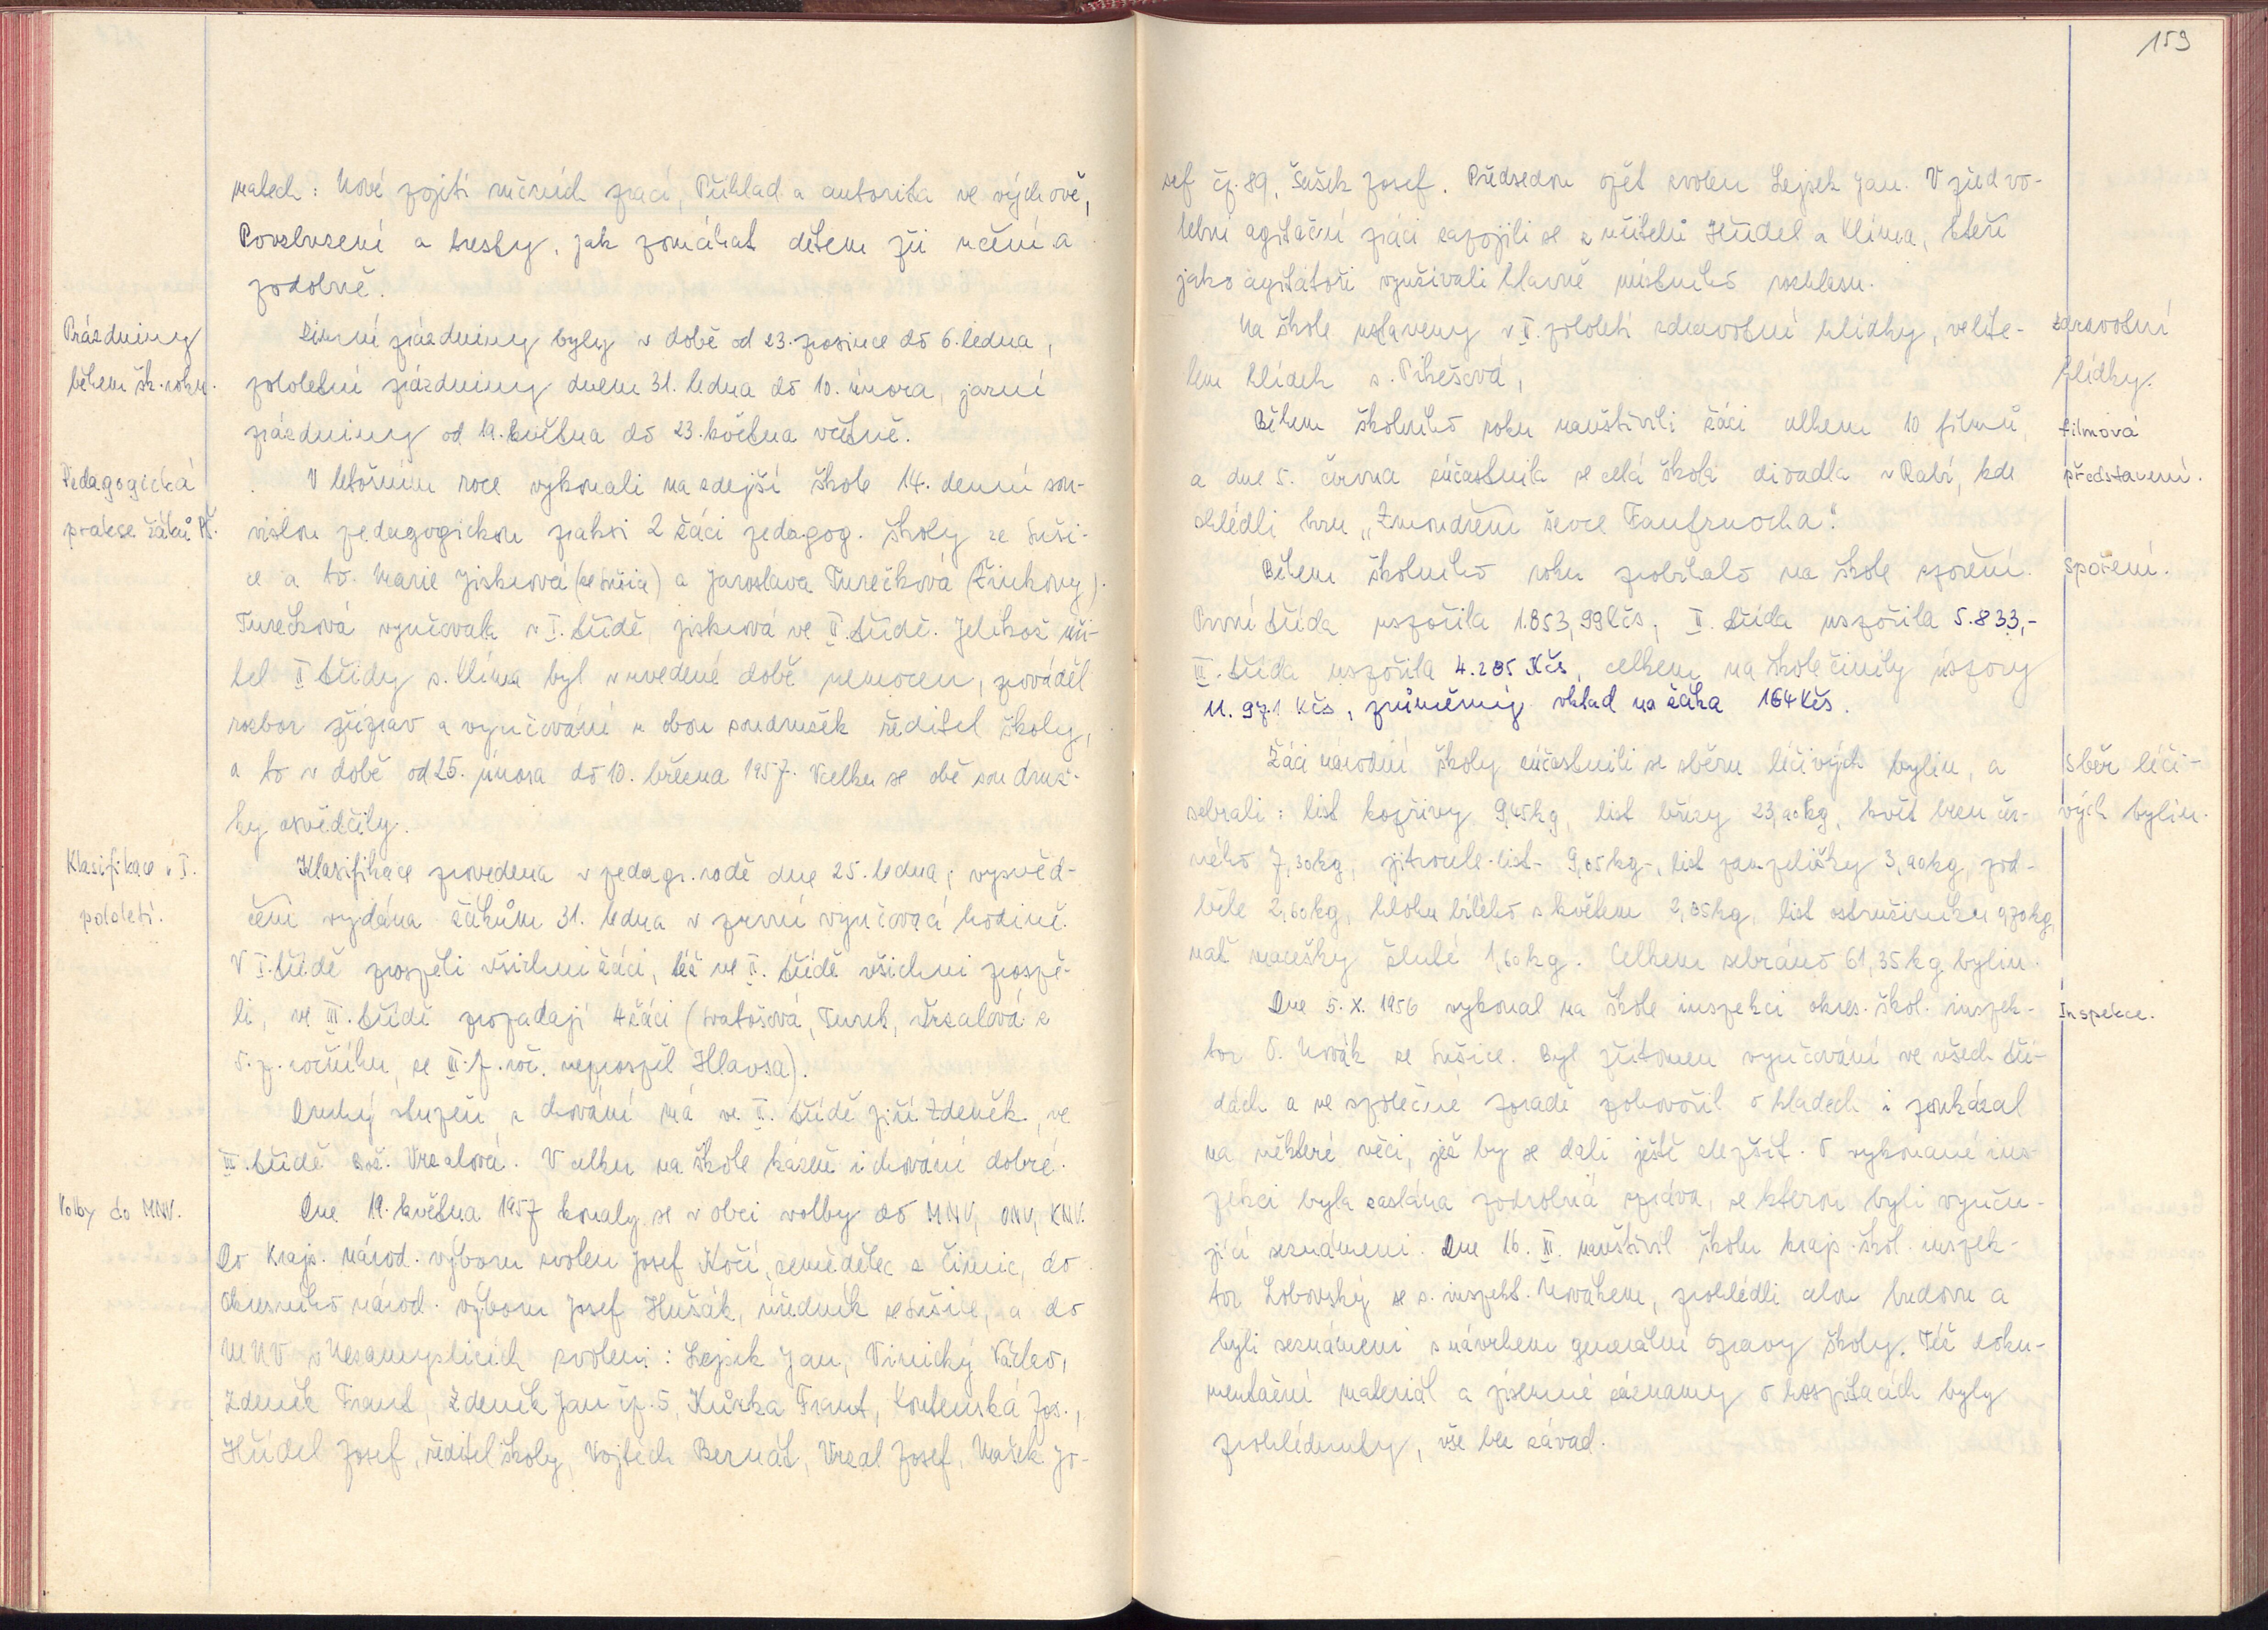 matech: Nové pojetí ručních prací, Příklad a autorita ve výchově,
Povzbuzení a tresty, jak pomáhat dětem při učení a
podobně.
Prázdniny
během šk. roku.
Zimní prázdniny byly v době od 23. prosince do 6. ledna,
pololetní prázdniny dnem 31. ledna do 10. února, jarní
prázdniny od 19. května do 23. května včetně.
Pedagogická
prakse žáků PŠ.
V letošním roce vykonali na zdejší škole 14. denní sou-
vislou pedagogickou praksi 2 žáci pedagog. školy ze Suši-
ce a to Marie Jiskrová (ze Sušice) a Jaroslava Turečková (Žinkovy).
Turečková vyučovala v I. třídě, Jiskrová ve II. třídě. Jelikož uči-
tel II třídy s. Klíma byl v uvedené době nemocen, prováděl
rozbor příprav a vyučování u obou soudružek ředitel školy,
a to v době od 25. února do 10. března 1957. Vcelku se obě soudruž-
ky osvědčily.
Klasifikace v I.
pololetí.
Klasifikace provedena v pedagog. radě dne 25. ledna, vysvěd-
čení vydána žákům 31. ledna v první vyučovací hodině.
V I. třídě prospěli všichni žáci, též ve II. třídě všichni prospě-
li, ve III. třídě propadají 4 žáci (Svatošová, Turek, Vrzalová z
5. p. ročníku, ze III. p. roč. neprospěl Hlavsa).
Druhý stupeň z chování má ve II. třídě Jiří Zdeněk, ve
III. třídě Bož. Vrzalová. V celku na škole kázeň i chování dobré.
Volby do MNV.
Dne 19. května 1957 konaly se v obci volby do MNV, ONV, KNV.
Do Kraj. národ. výboru zvolen Josef Kočí, zemědělec z Čimic, do
Okresního národ. výboru Josef Hušák, úředník ze Sušice, a do
MNV v Nezamyslicích zvoleni: Lejsek Jan, Vinický Václav,
Zdeněk Frant, Zdeněk Jan čp. 5, Kůrka Frant, Koutenská Jos.,
Hřídel Josef, ředitel školy, Vojtěch Bernát, Vrzal Josef, Mašek Jo-
159
sef čp. 89, Sušek Josef. Předsedou opět zvolen Lejsek Jan. V předvo-
lební agitační práci zapojili se z učitelů Hřídel a Klíma, kteří
jako agitátoři využívali hlavně místního rozhlasu.
Na škole ustaveny v I. pololetí zdravotní hlídky, velite-
lem hlídek s. Pikešová,
zdravotní
hlídky.
Během školního roku navštívili žáci celkem 10 filmů
a dne 5. června zúčastnila se celá škola divadla v Rabí, kde
shlédli hru „Zmoudření ševce Fanfrnocha".
filmová
představení.
Během školního roku probíhalo na škole spoření.
První třída uspořila 1.853,99 Kčs, II. třída uspořila 5.833,-
III. třída uspořila 4.285 Kčs, celkem na škole činily úspory
11.971 Kčs, průměrný vklad na žáka 164 Kčs.
Spoření.
Žáci národní školy zúčastnili se sběru léčivých bylin, a
sebrali: list kopřivy 9,45 kg, list břízy 23,20 kg, květ bezu čer-
ného 7,30 kg, jitrocele-list- 9,05 kg-, list pampelišky 3,20 kg, pod-
běle 2,60 kg, hlohu bílého s květem 2,35 kg, list ostružiníku 9,70 kg,
nať macešky žluté 1,60 kg. Celkem sebráno 61,35 kg bylin.
Sběr léči-
vých bylin.
Dne 5. X. 1956 vykonal na škole inspekci okres. škol. inspek-
tor O. Novák ze Sušice. Byl přítomen vyučování ve všech tří-
dách a ve společné poradě pohovořil o kladech i poukázal
na některé věci, jež by se dali ještě zlepšit. O vykonané ins-
pekci byla zaslána podrobná zpráva, se kterou byli vyuču-
jící seznámeni. Dne 16. XI. navštívil školu kraj. škol. inspek-
tor Lobovský se s. inspekt. Novákem, prohlédli celou budovu a
byli seznámeni s návrhem generální opravy školy. Též doku-
mentační materiál a písemné záznamy o hospitacích byly
prohlédnuty, vše bez závad.
Inspekce.